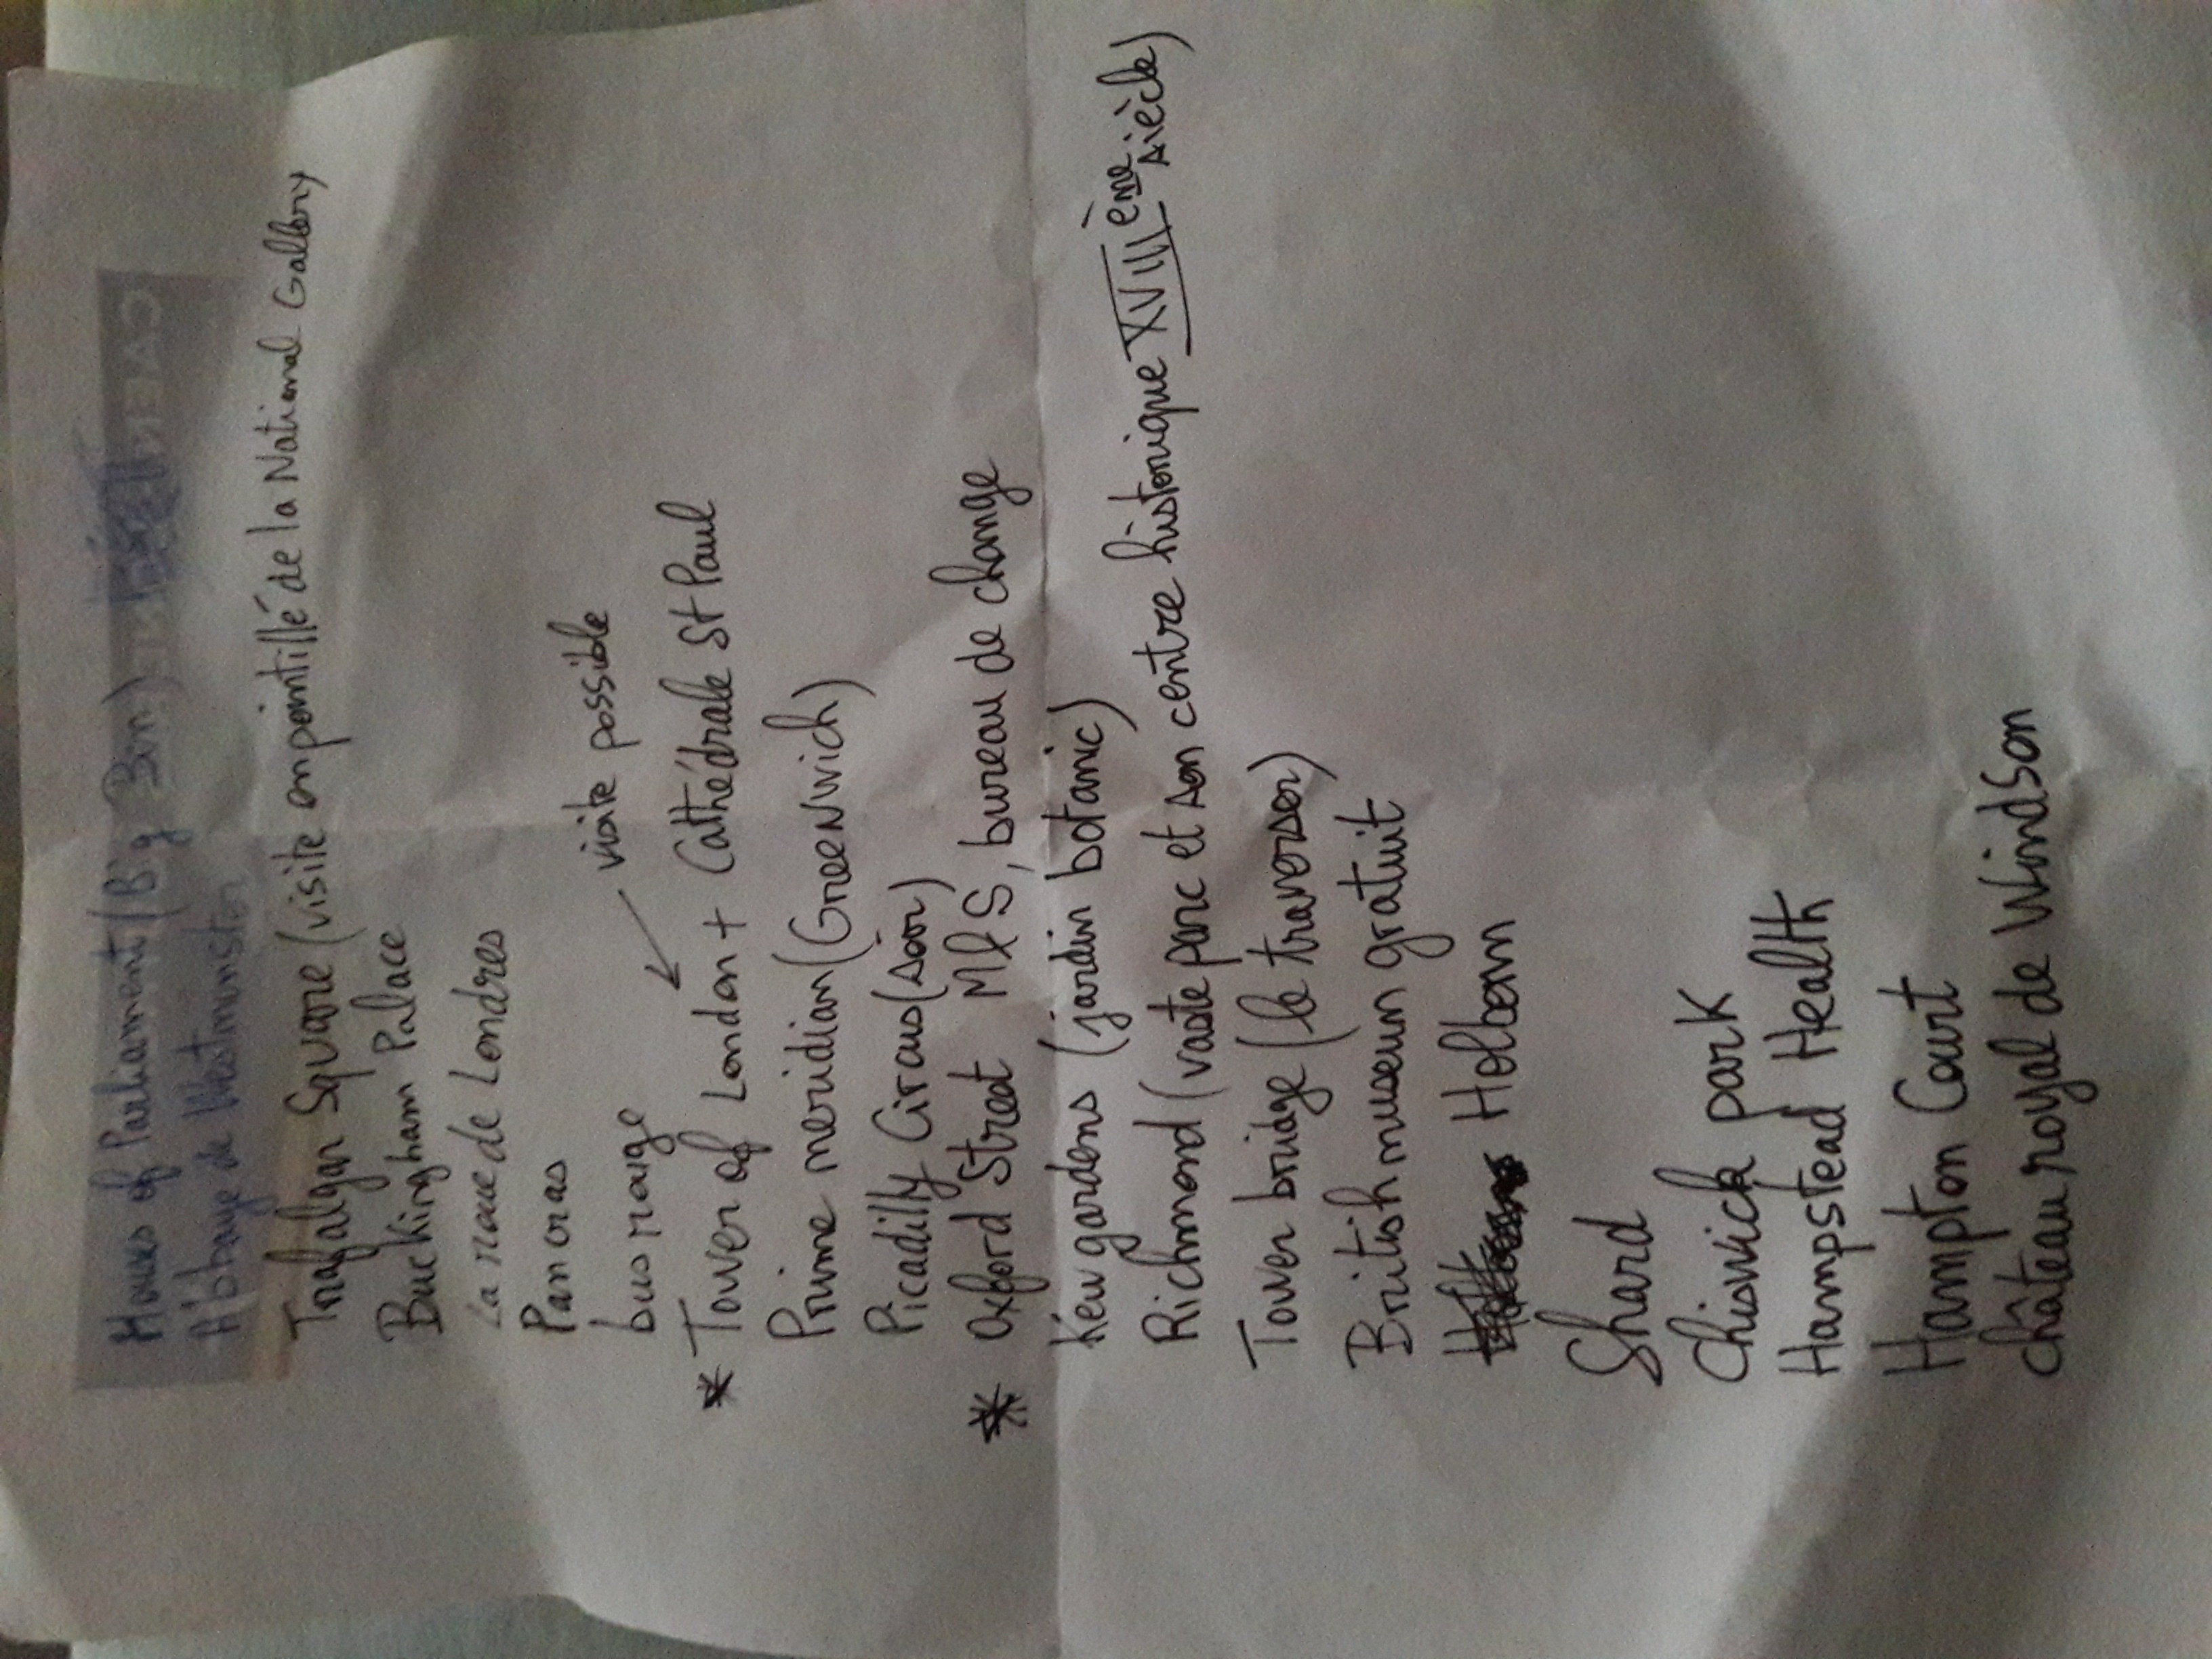 Houses of Parliament (Big Ben)
Abbaye de Westminster
Trafalgar Square (visite en pointillé de la National Gallery
Buckingham Palace
La roue de Londres
Pancras
bus rouge
visite possible
* Tower of London + Cathédrale St Paul
Prime meridian (Greenwich)
Picadilly Circus (soir)
* Oxford Street M&S, bureau de change
Kew gardens (jardin botanic)
Richmond (vaste parc et son centre historique XVIIIème siècle)
Tower bridge (le traverser)
British museum gratuit
Holborn
Shard
Chiswick park
Hampstead Health
Hampton Court
château royal de Windsor